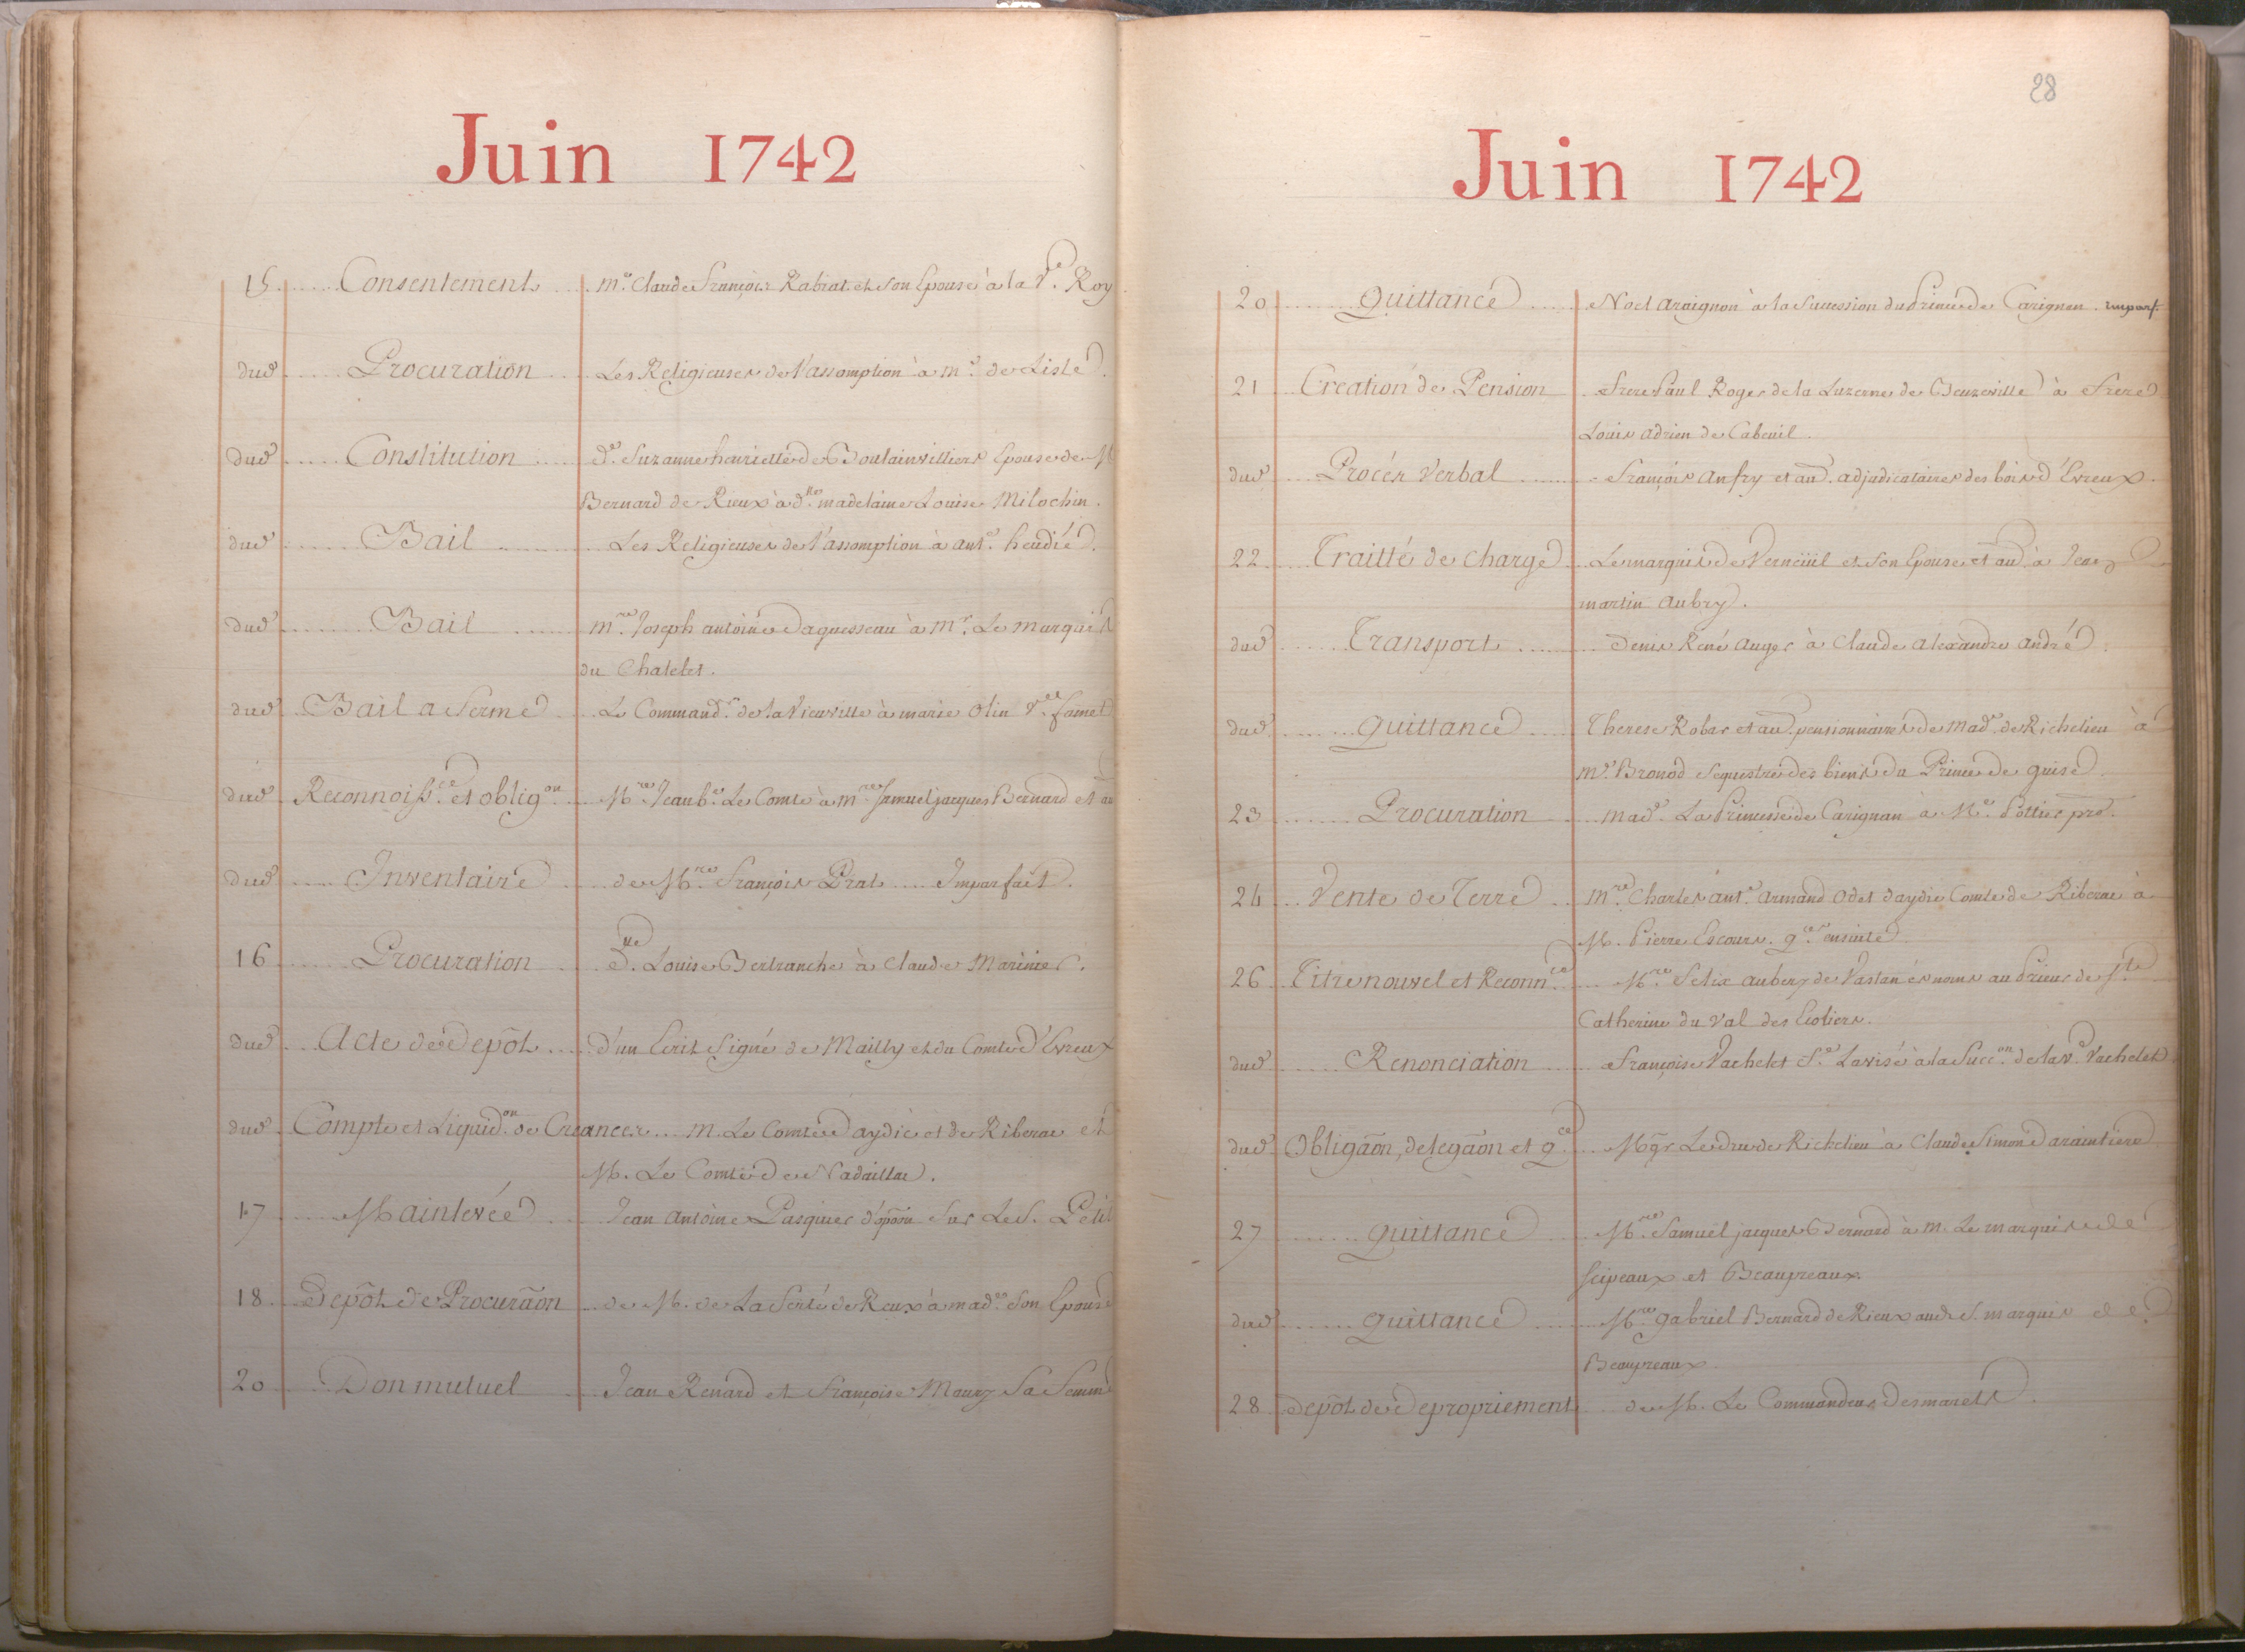 Juin 1742
15 Consentement Mre. Claude François Rabiat et son Epouse à la Ve. Roy
dud Procuration Les Religieuses de l'assomption à mr. de Lisle.
dud Constitution de. Suzanne henriette de Boulainvilliers Epouse de M
Bernard de Rieux à dlle. madelaine Louise Milochin.
dud Bail Les Religieuses de l'assomption à ant.
dud Bail mre. Joseph antoine Daguesseau à Mr. Le marquis
du Chatelet.
dud Bail a ferme Le Commandr. de la Vieuville à marie olin Ve.
dud Reconnoisce. et obligon. Mre. Jean be. Le Comte à mre. Samuel jacques Bernard et au
dud Inventaire de Mre. François Prat Imparfait.
16 Procuration dlle. Louise Bertranche à Claude Marinier.
dud Acte de depôt d'un Ecrit signé de Mailly et du Comte d'Evreux
dud Compte et Liquidon. de Creances M. Le Comte d'aydie et de Riberac et
M. Le Comte de Nadaillac.
17 Mainlevée Jean antoine Pasquier d'opon sur Le S. Petit
18 Depôt de Procuraōn de M. de La Ferté de Reux à made. son Epouse
20 Don mutuel Jean Renard et Françoise Maury sa femme
28
Juin 1742
20 Quittance Noel araignon à la succession du Prince de Carignan. imparf.
21 Creation de Pension Frere Paul Roger de la Luzerne de Beuzeville à Frere
Louis adrien de Cabeuil.
dud Procés Verbal François anfry et au. adjudicataires des bois d'Evreux.
22 Traitté de charge Le marquis de Verneüil et son Epouse et au. à Jean
martin aubry.
dud Transport Denis René auger à Claude alexandre andré.
dud Quittance Therese Robar et au. pensionnaires de Made. de Richelieu à
Me. Bronod sequestre des biens du Prince de guise
23 Procuration made. La Princesse de Carignan à Me. Pottier pr.
24 Vente de Terre mre. Charles ant. armand odet daydie Comte de Riberac à
M. Pierre Escourn. qce. ensuite
26 Titre nouvel et Reconnce. Mre. Felix aubery de Vastan és noms au Prieur de Ste
Catherine du Val des Ecoliers.
dud Renonciation Françoise Vachelet fe. Lavisé à la Succon. de la ve. Vachelet
dud Obligaōn, delegaōn et qce. Mgr Le duc de Richelieu à Claude Simon
27 Quittance Mre. Samuel jacques Bernard à M. Le marquis de
Scipeaux et Beaupreaux
dud Quittance Mre. gabriel Bernard de Rieux aud. S. marquis de
Beaupreaux
28 depôt de depropriement de M. Le Commandeur Desmarets.